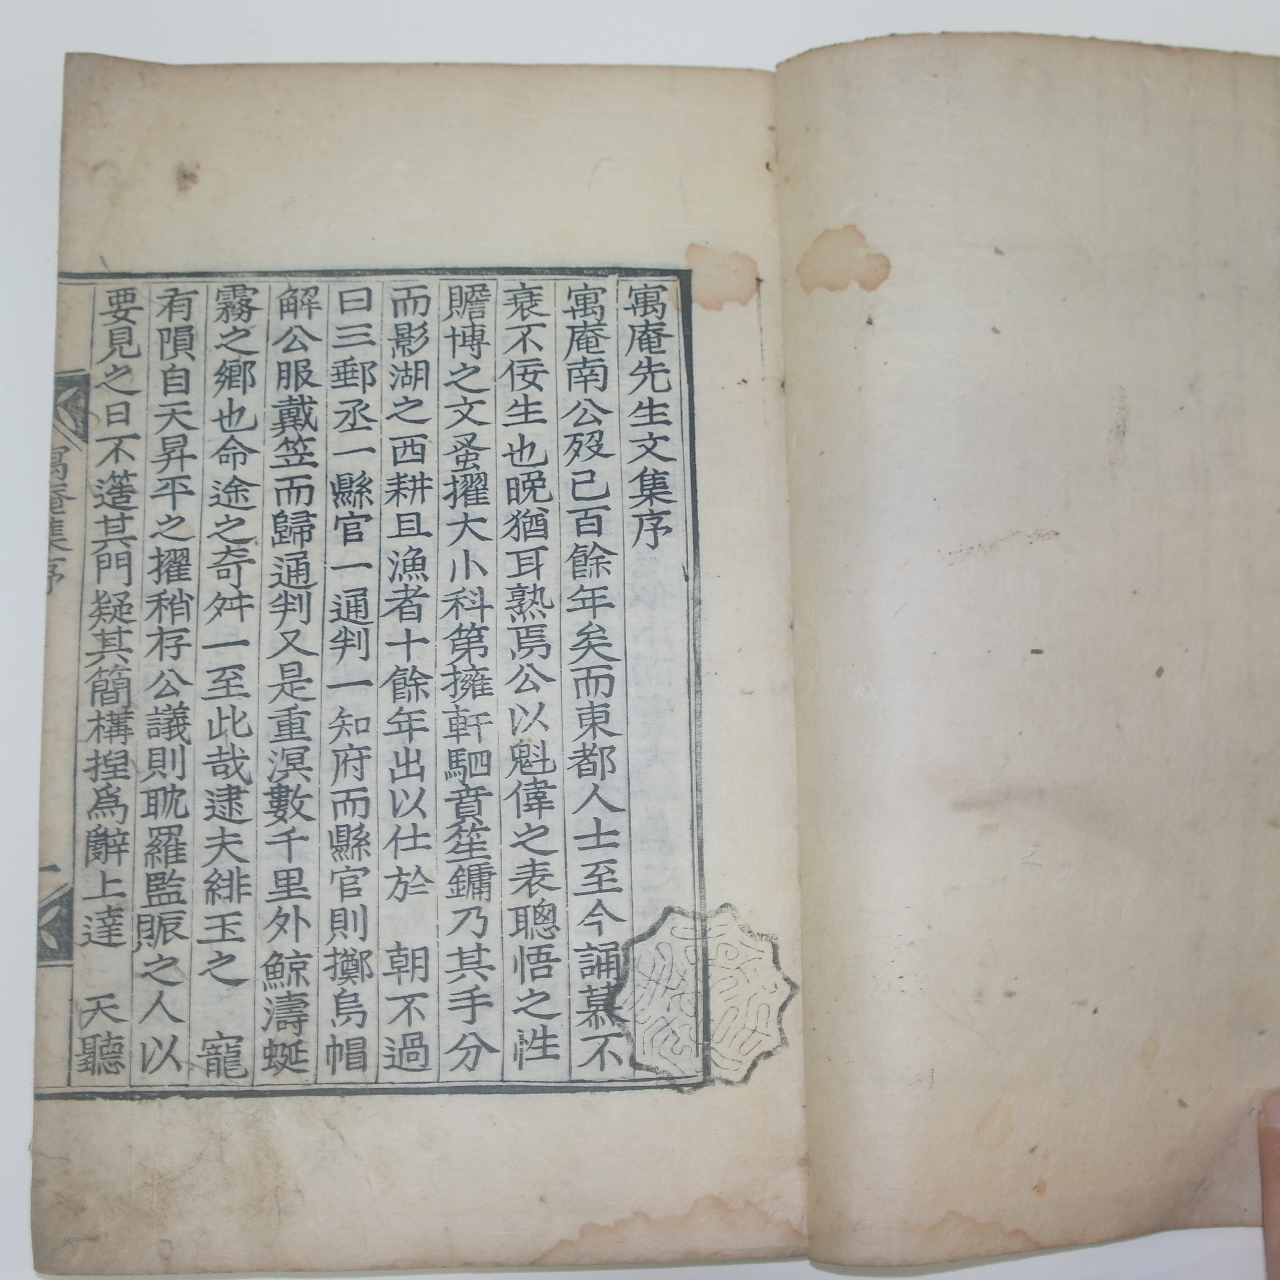 寓庵先生文集序
寓庵南公歿已百餘年矣而東都人士至今誦慕不
衰不佞生也晚猶耳熟焉公以魁偉之表聰悟之性
贍博之文蚤擢大小科第擁軒駟賁笙鏞乃其手分
而影湖之西耕且漁者十餘年出以仕於 朝不過
曰三郵丞一縣官一通判一知府而縣官則擲烏帽
解公服戴笠而歸通判又是重溟數千里外鯨濤蜒
霧之鄉也命途之奇舛一至此哉逮夫緋玉之 寵
有隕自天昇平之擢稍存公議則耽羅監賑之人以
要見之日不簉其門疑其簡構捏爲辭上達 天聽
寓庵集序
一